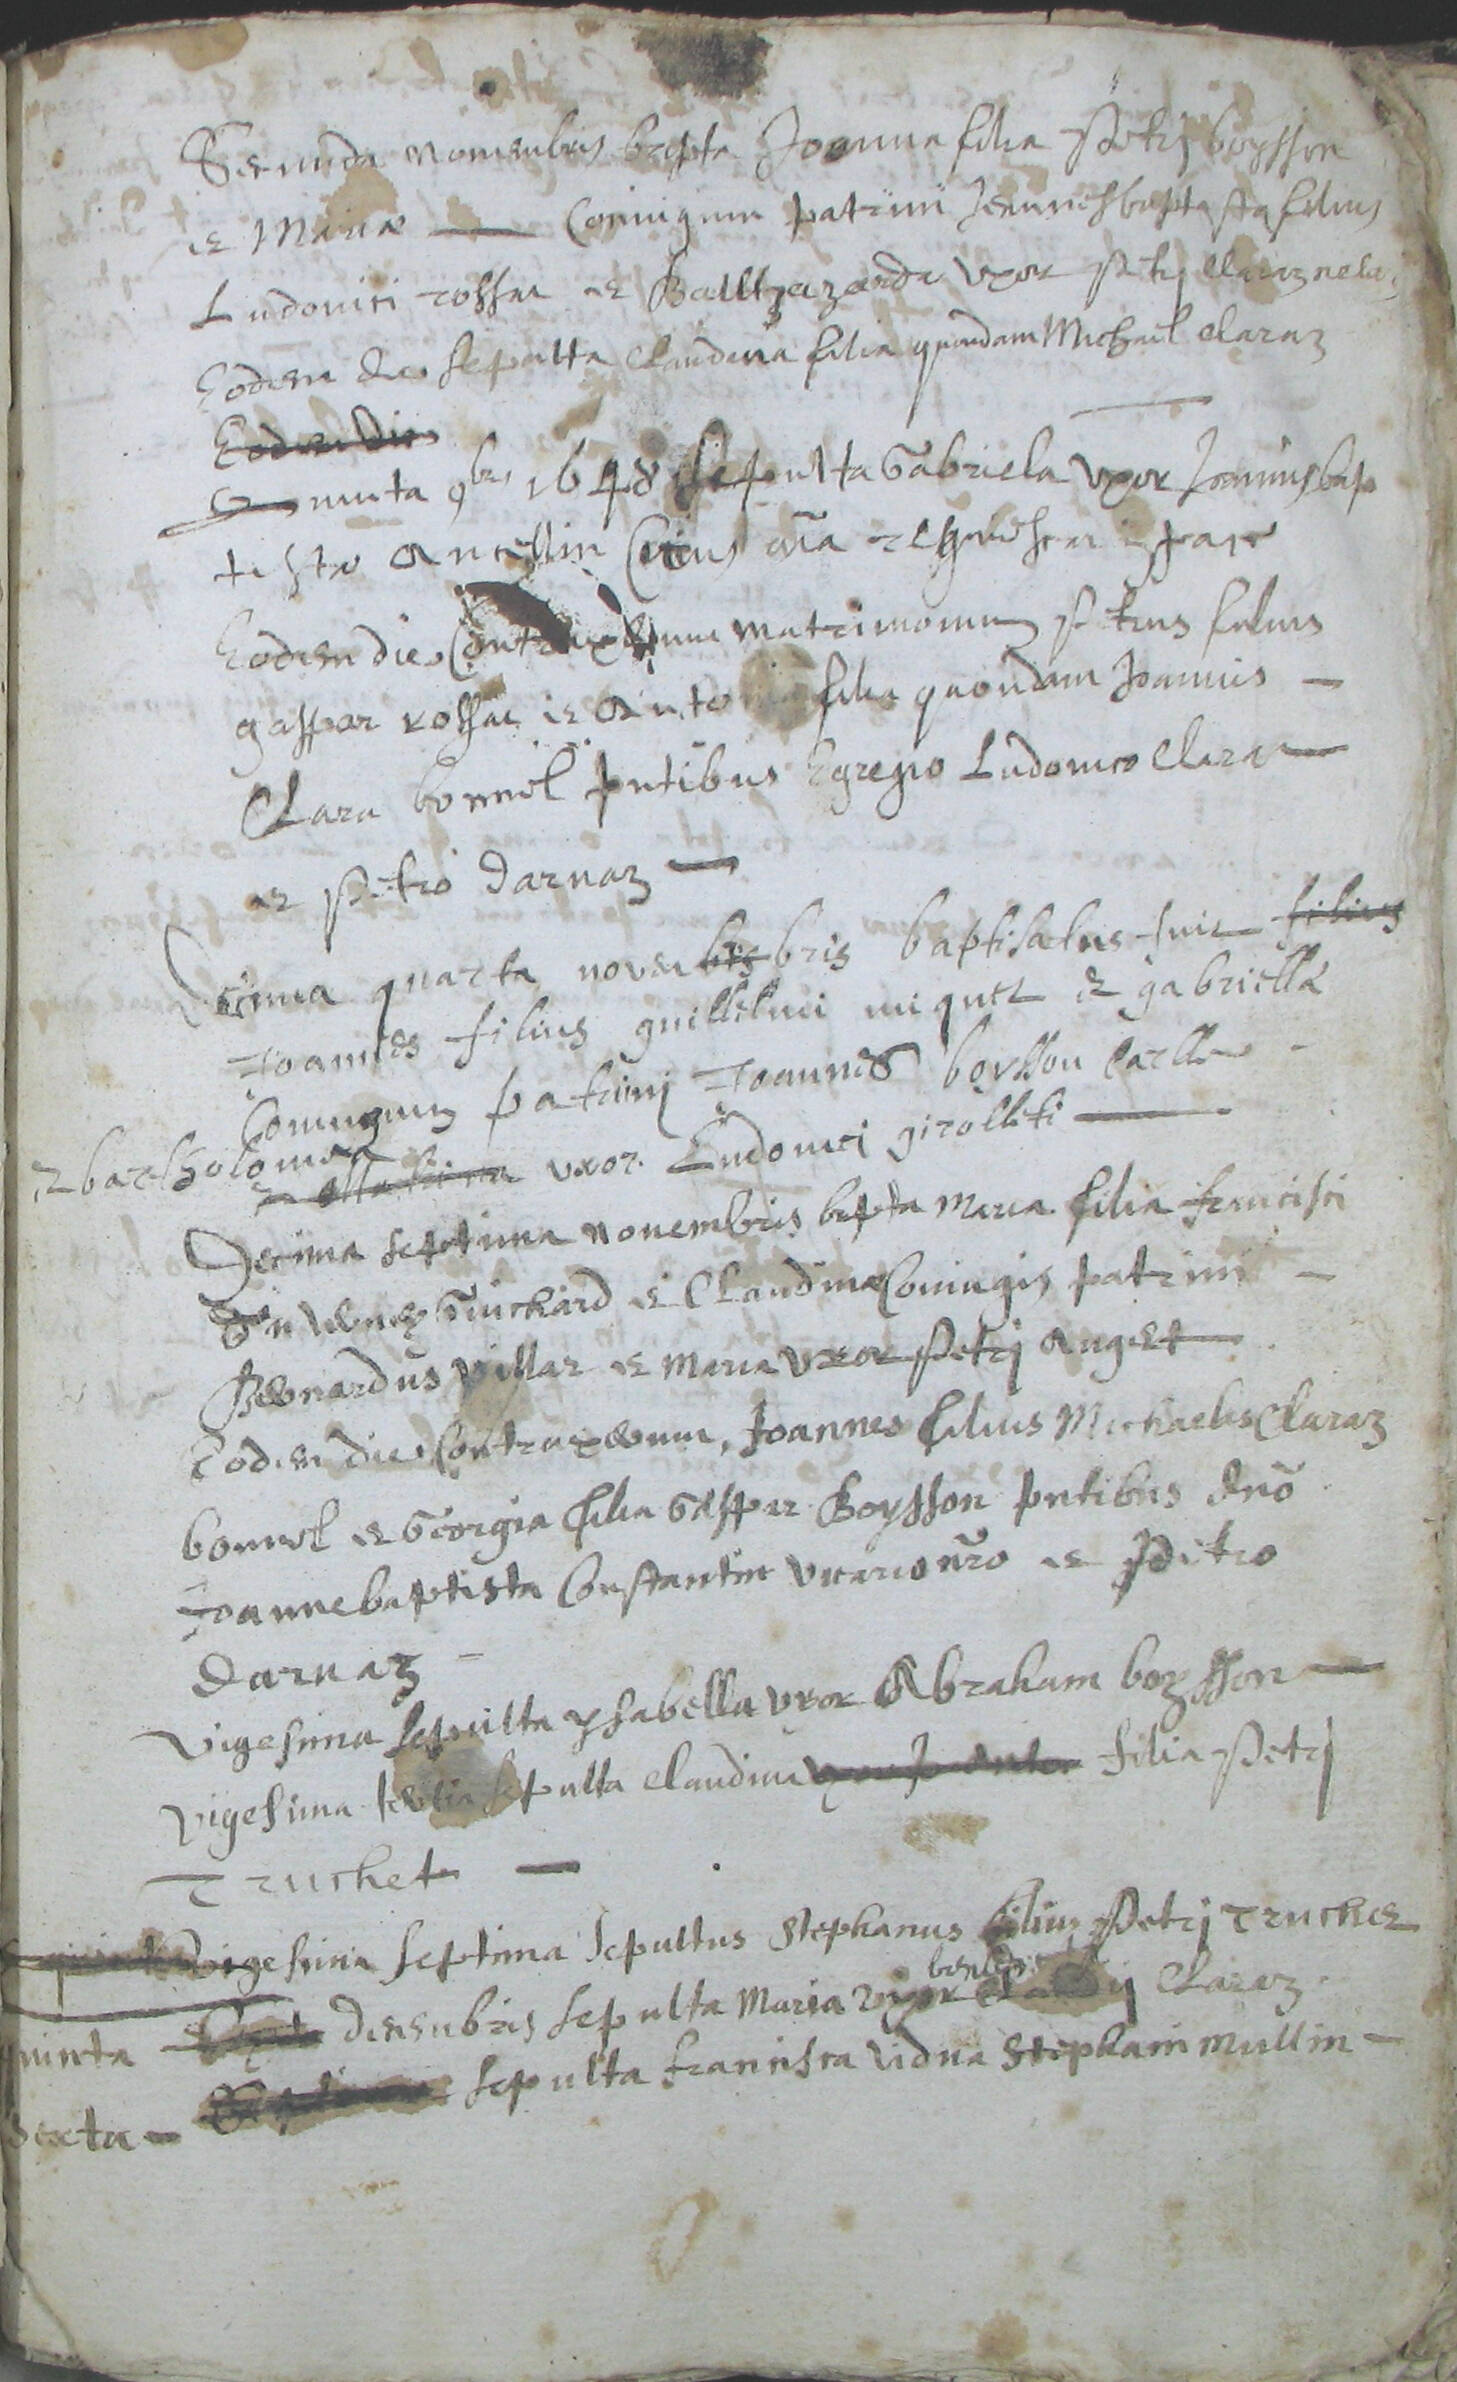 Secunda nouembris bapta Joanna filia Petrj boysson
et Mariæ — Coniugum patrini Joannesbaptista filius
Ludouici rossat et Balltzazarda vxor Petrj Claraz nela
Eodem die sepulta Claudina filia quondam Michael Claraz
Eodem die
Quinta 9bris 1648 sepulta Gabriela vxor Joannisbap
tiste Ancellin Cuius aīa requiescat in pace
Eodem die Contraxerunt matrimonium Petrus filius
gaspar rossat et Antonia filia quondam Joannis —
Clara bonnel pntibus Egregio Ludouico Clara —
et Petro Darnaz —
Decima quarta novembris bris baptisatus fuit filius
Joannes filius guillelmi miquet et gabriella
Coniugum patrinj Joannes boysson Carlle
et bartholomea uxor Ludouici girolleti —
Decima septima nouembris bapta Maria filia francisci
Guichard et Claudinæ Coniugis patrini —
Bernardus Villar et Maria vxor Petrj Auget
Eodem die Contraxerunt, Joannes filius Michaelis Claraz
bonnel et Georgia filia Gaspar Boysson pntibus dnō
Joannebaptista Constantin vicario nro et Petro
Darnaz —
Vigesima sepulta ysabella vxor Abraham boysson —
Vigesima tertia sepulta Claudina filia Petrj
Truchet —
Vigesima septima sepultus Stephanus filius Petrj Truchet
quinta decembris sepulta Maria vxor Claudij Claraz
Sexta — Septima sepulta francisca vidua Stephani Mullin —